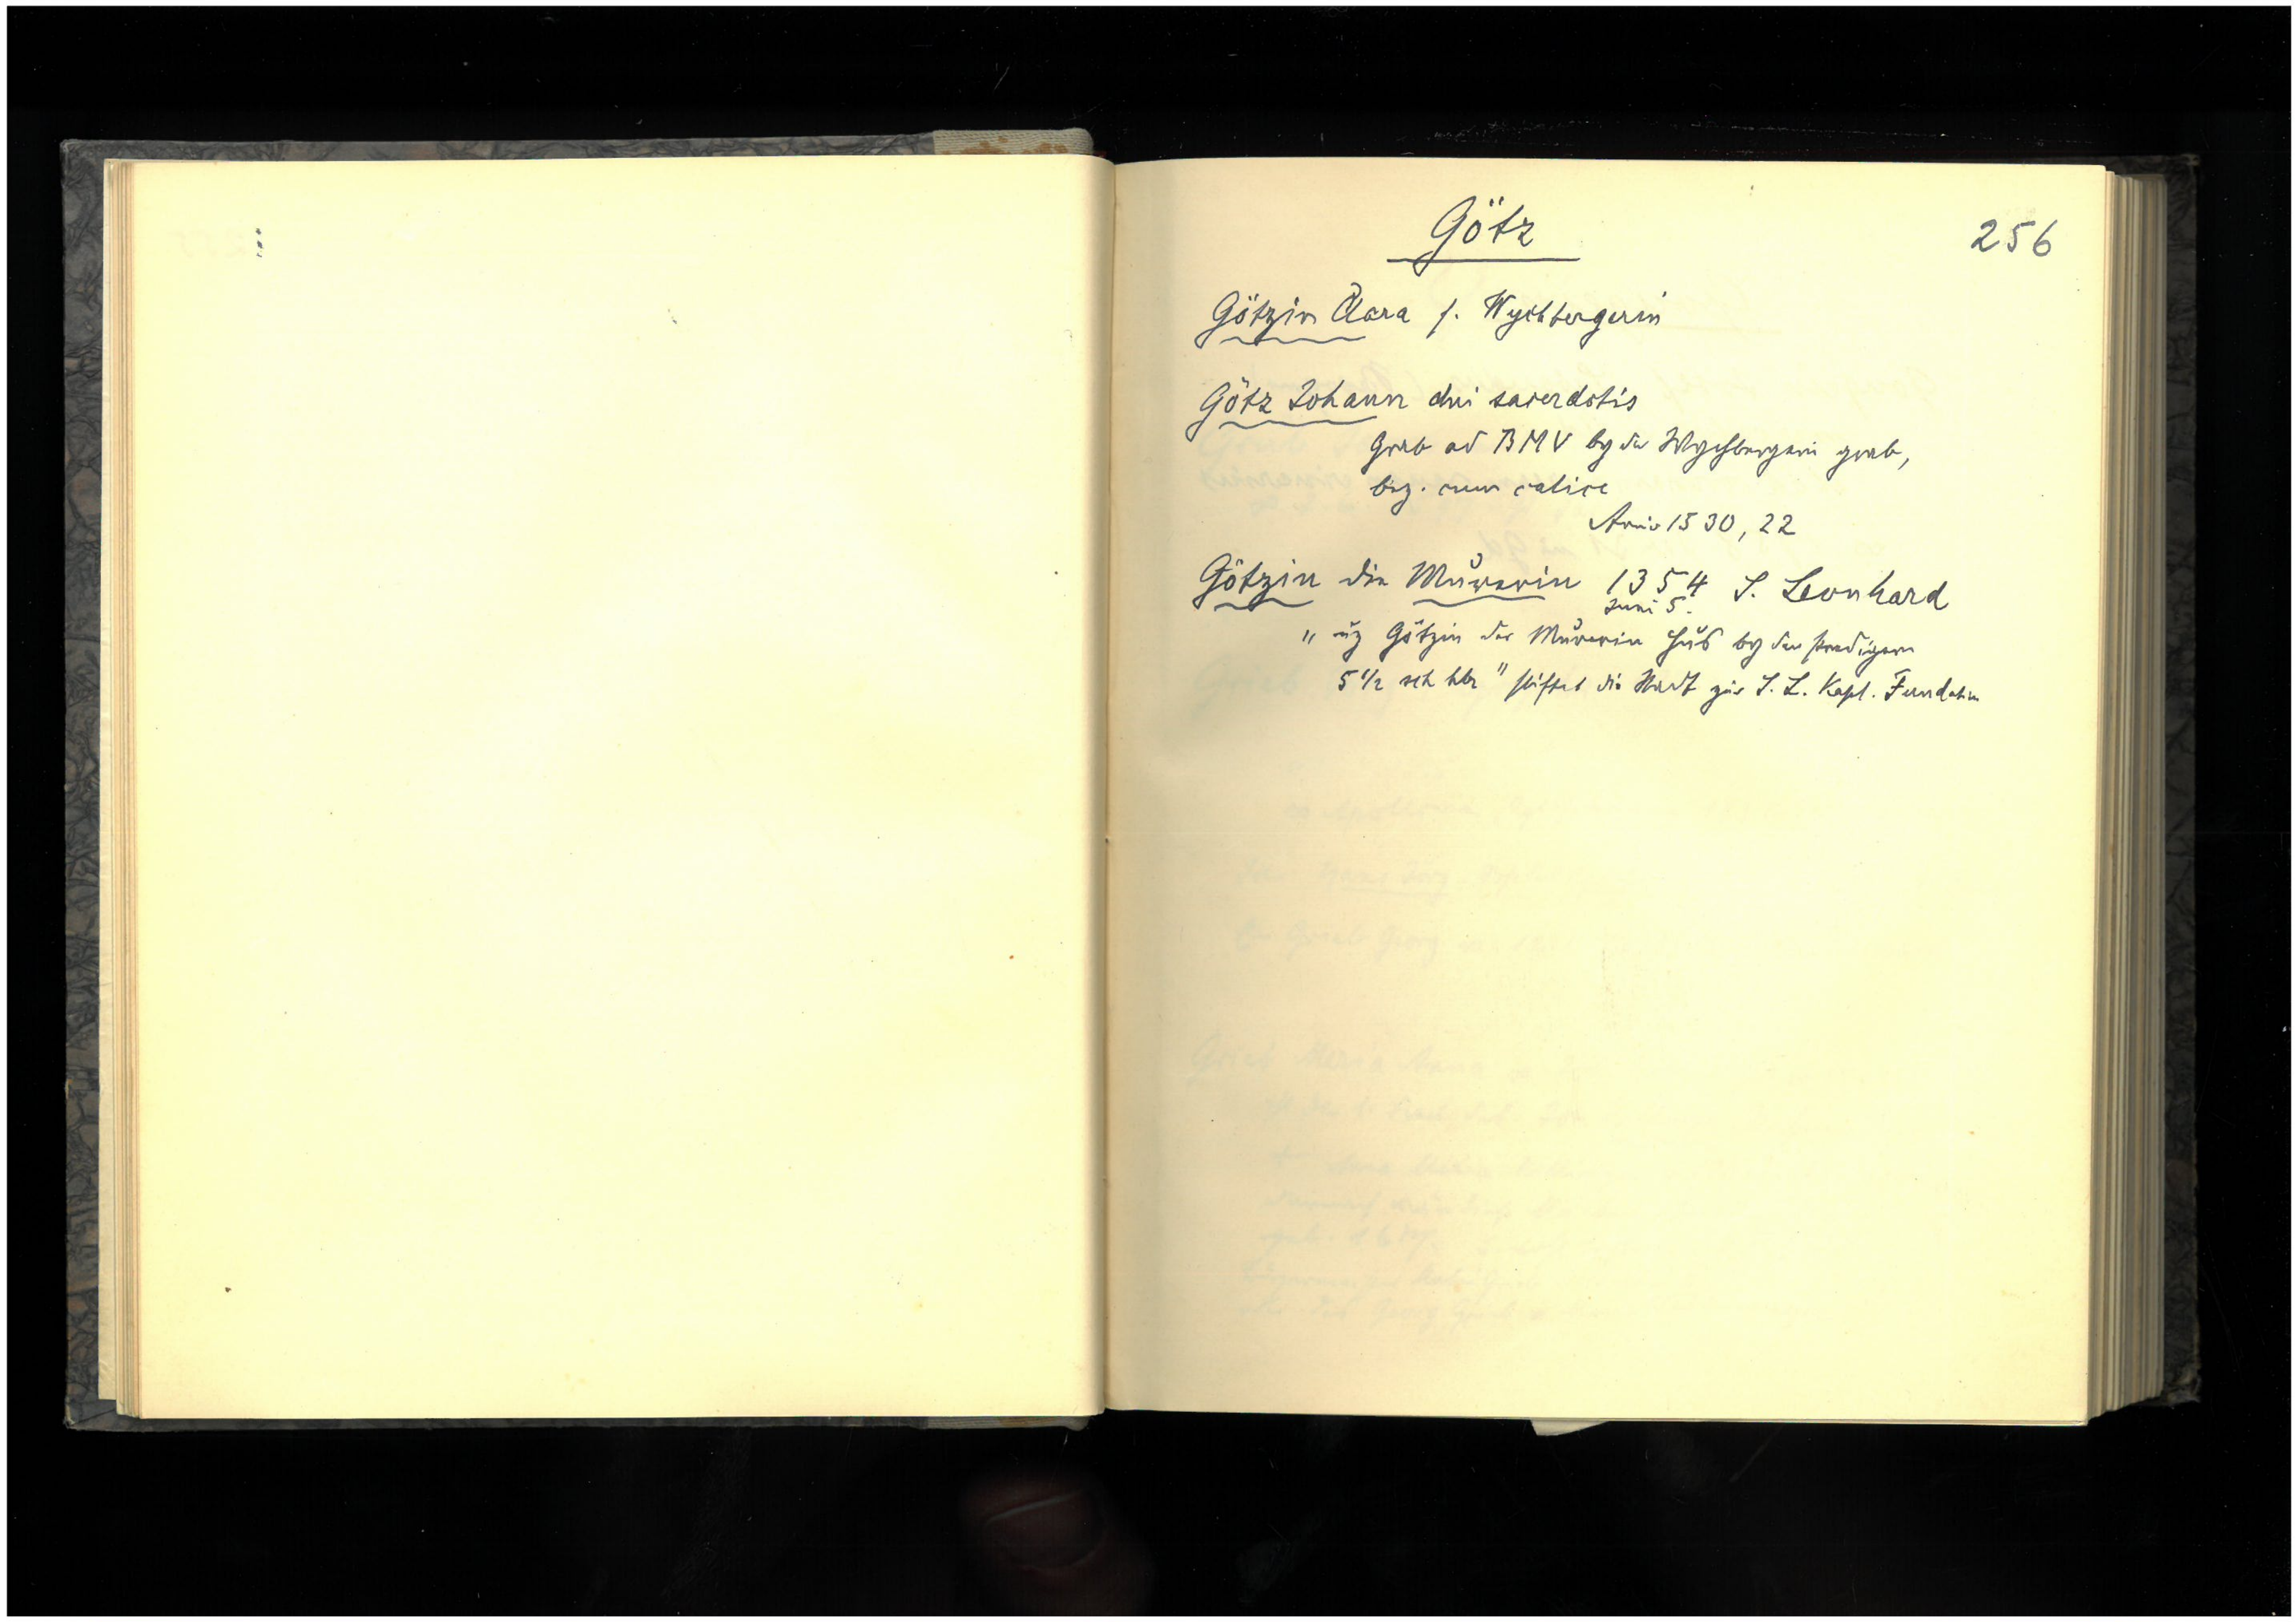 Götz
256
Götzin Clara s. Wychbergerin
Götz Johann dni sacerdotis
Grab ad BMV by der Wychbergerin grab,
bez. cum calice
Anniv 1530, 22
Götzin die Můrerin 1354 S. Leonhard
Juni 5.
"uz Götzin der Můrerin hus by den predigern
5 1/2 sch hlr" stiftet die Stadt zur S. L. Kapl. Fundation